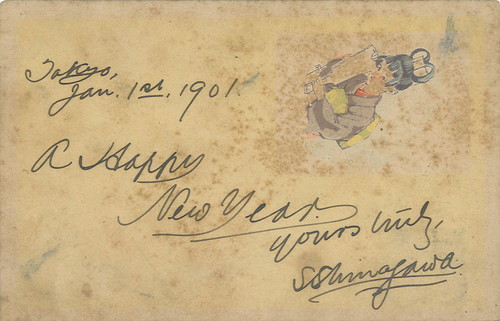 Tokyo,
Jan. 1st, 1901
A Happy
New Year.
Yours truly,
S Shinagawa.